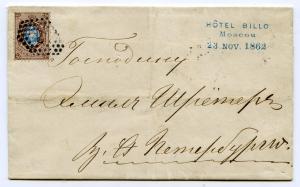 HÔTEL BILLO
Moscou
23 NOV. 1862
Господину
Эмилъ Шрётеръ
С. Петербургъ.